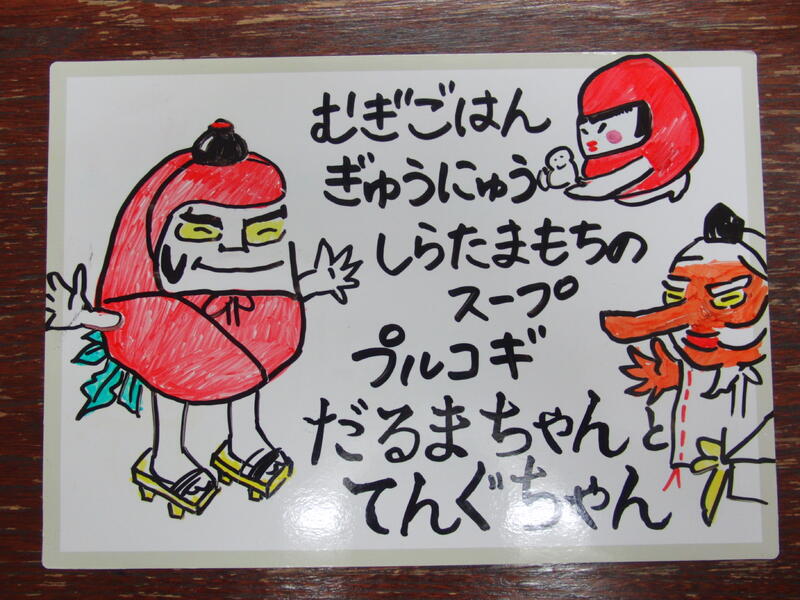 むぎごはん
ぎゅうにゅう
しらたまもちの
スープ
プルコギ
だるまちゃんと
てんぐちゃん